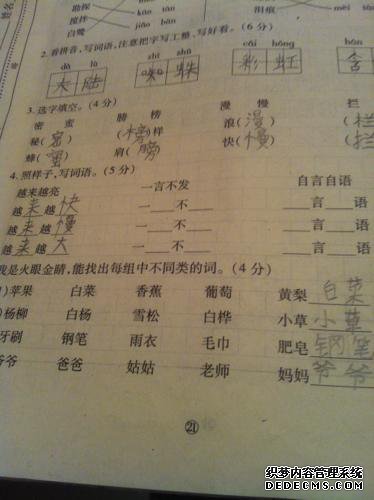 姓名
勘探 kān tàn
搅拌
白鹭 jiǎo bàn
2. 看拼音,写词语,注意把字写工整、写好看。(6分)
dà lù zhī zhū cǎi hóng hán
大陆 蜘蛛 彩虹 含
3. 选字填空。(4分)
密 蜜 膀 榜 漫 慢 拦
秘(密) (榜)样 浪(漫) (栏
蜂(蜜) 肩(膀) 快(慢) (拦
4. 照样子,写词语。(5分)
越来越亮 一言不发 自言自语
越来越快 一___不___ ___言___语
越来越慢 一___不___ ___言___语
越来越大 一___不___ ___言___语
我是火眼金睛,能找出每组中不同类的词。(4分)
1)苹果 白菜 香蕉 葡萄 黄梨 白菜
)杨柳 白杨 雪松 白桦 小草 小草
牙刷 钢笔 雨衣 毛巾 肥皂 钢笔
爷爷 爸爸 姑姑 老师 妈妈 爷爷
21
织梦内容管理系统
HTTP://WWW.DEDECMS.COM